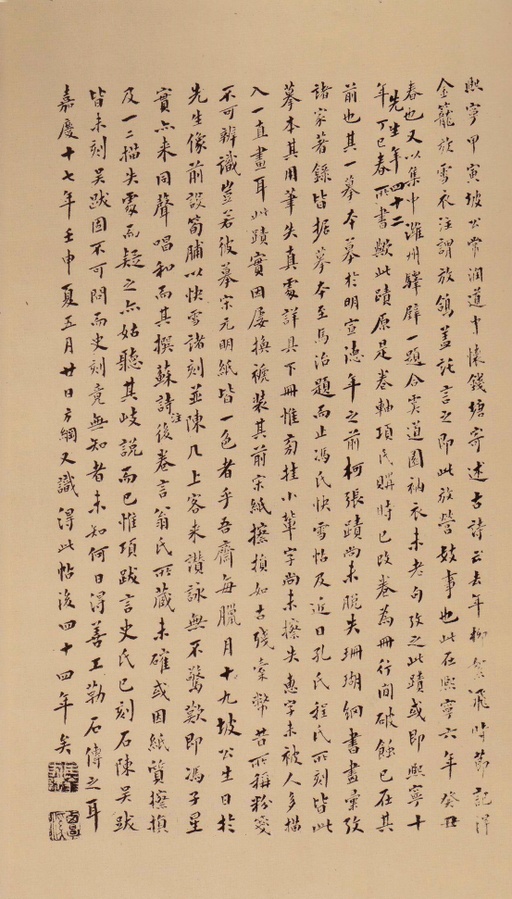 熙寧甲寅坡公常潤道中懷錢塘寄述古詩云去年柳絮飛時節記得
金籠放雪衣注謂放鴿蓋託言之即此放營妓事也此在熙寧六年癸丑
春也又以集中濰州驛壁一題合爽道園衲衣未老句攷之此蹟或即熙寧十
年丁巳春所書歟此蹟原是卷軸項氏購時已改卷為冊行間破蝕已在其
先生年四十二
前也其一摹本摹於明宣德年之前柯張蹟尚未脫失珊瑚網書畫彙攷
諸家著錄皆据摹本至馬治題而止馮氏快雪帖及近日孔氏程氏所刻皆此
摹本其用筆失真處詳具下冊惟前挂小葦字尚未擦失惠字未被人多描
入一直畫耳此蹟實因屢換褫裝其前宋紙擦損如古殘彙弊昔所稱粉箋
不可辨識豈若彼摹宋元明紙皆一色者乎吾齋每臘月十九坡公生日於
先生像前設筍脯以快雪諸刻並陳几上客來讚詠無不驚歎即馮子星
實亦来同聲唱和而其撰蘇詩注後卷言翁氏所藏未確或因紙質擦損
及一二描失處而疑之亦姑聽其歧說而已惟項跋言史氏已刻石陳吳跋
皆未刻吳跋因不可問而史刻竟無知者未知何日得善工勒石傳之耳
嘉慶十七年壬申夏五月廿日方綱又識得此帖後四十四年矣